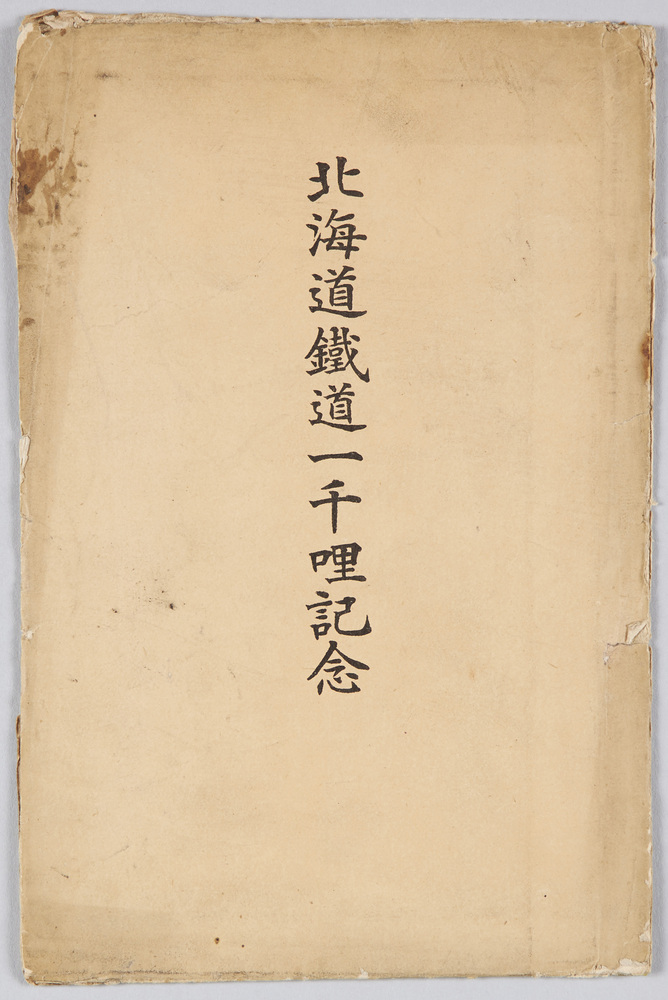 北海道鐵道一千哩記念